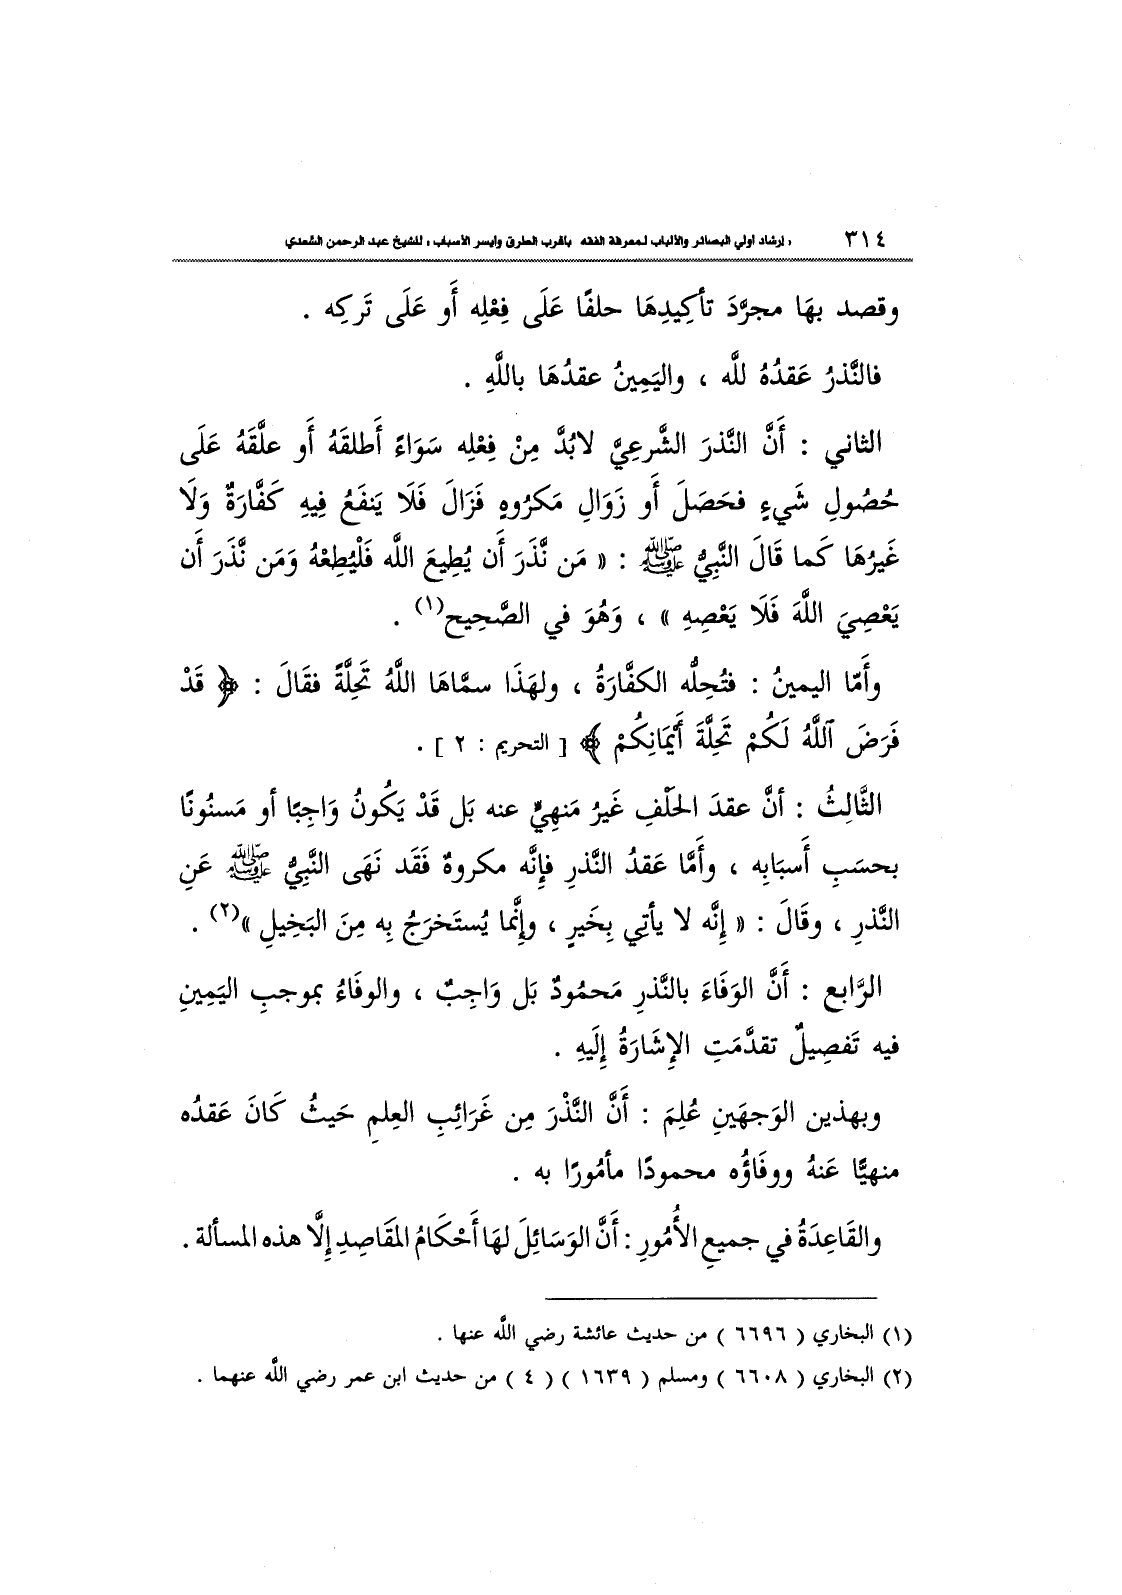 ٣١٤ « إرشاد أولي البصائر والألباب لمعرفة الفقه بأقرب الطرق وأيسر الأسباب » للشيخ عبد الرحمن السَّعدي
وقصد بهَا مجرَّدَ تأكِيدِهَا حلفًا عَلَى فِعْلِه أَو عَلَى تَركِه .
فالنَّذرُ عَقدُهُ للَّه ، واليَمِينُ عقدُهَا باللَّهِ .
الثاني : أَنَّ النَّذرَ الشَّرعِيَّ لابُدَّ مِنْ فِعْلِه سَوَاءً أَطلقَهُ أَو علَّقَهُ عَلَى
حُصُولِ شَيءٍ فحَصَلَ أَو زَوَالِ مَكرُوهٍ فَزَالَ فَلَا يَنفَعُ فِيهِ كَفَّارَةٌ وَلَا
غَيرُهَا كَما قَالَ النَّبِيُّ ﷺ : « مَن نَّذَرَ أَن يُطِيعَ اللَّه فَلْيُطِعْهُ وَمَن نَّذَرَ أَن
يَعْصِيَ اللَّهَ فَلَا يَعْصِهِ » ، وَهُوَ في الصَّحِيح(١) .
وأَمّا اليمينُ : فتُحِلُّه الكفَّارَةُ ، ولهَذَا سمَّاهَا اللَّهُ تَحِلَّةً فقَالَ : ﴿ قَدْ
فَرَضَ ٱللَّهُ لَكُمْ تَحِلَّةَ أَيْمَانِكُمْ ﴾ [ التحريم : ٢ ] .
الثَّالِثُ : أنَّ عقدَ الحَلْفِ غَيرُ مَنهِيٍّ عنه بَل قَدْ يَكُونُ وَاجِبًا أو مَسنُونًا
بحسَبِ أَسبَابِه ، وأَمَّا عَقدُ النَّذرِ فإِنَّه مكروهٌ فَقَد نَهَى النَّبِيُّ ﷺ عَنِ
النَّذرِ ، وقَالَ : « إِنَّه لا يأتِي بِخَيرٍ ، وإِنَّما يُستَخرَجُ بِه مِنَ البَخِيلِ »(٢) .
الرَّابع : أَنَّ الوَفَاءَ بالنَّذرِ مَحمُودٌ بَل وَاجِبٌ ، والوفَاءُ بموجبِ اليَمِينِ
فيه تَفصِيلٌ تقدَّمَتِ الإِشَارَةُ إِلَيهِ .
وبهذين الوَجهَينِ عُلِمَ : أَنَّ النَّذْرَ مِن غَرَائِبِ العِلمِ حَيثُ كَانَ عَقدُه
منهيًّا عَنهُ ووفَاؤُه محمودًا مأمُورًا به .
والقَاعِدَةُ في جميعِ الأُمُورِ : أَنَّ الوَسَائِلَ لهَا أَحْكَامُ المَقَاصِدِ إِلَّا هذه المسألة .
(١) البخاري ( ٦٦٩٦ ) من حديث عائشة رضي اللَّه عنها .
(٢) البخاري ( ٦٦٠٨ ) ومسلم ( ١٦٣٩ ) ( ٤ ) من حديث ابن عمر رضي اللَّه عنهما .